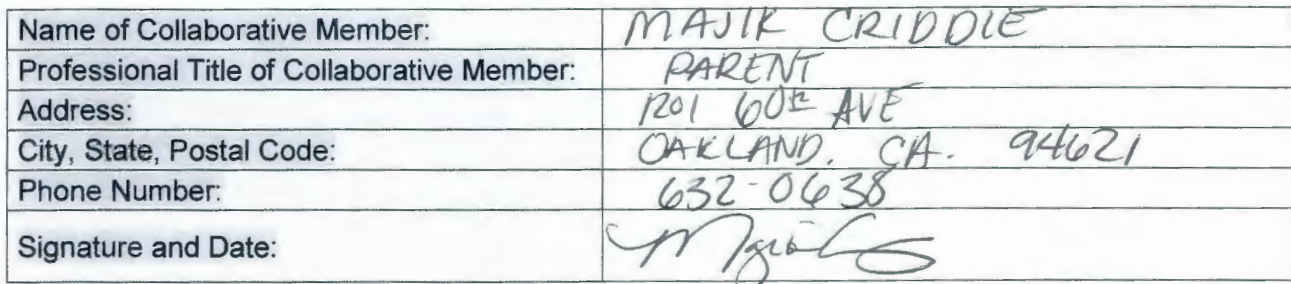 Name of Collaborative Member: MAJIK CRIDDLE
Professional Title of Collaborative Member: PARENT
Address: 1201 60th AVE
City, State, Postal Code: OAKLAND, CA. 94621
Phone Number: 632-0638
Signature and Date: